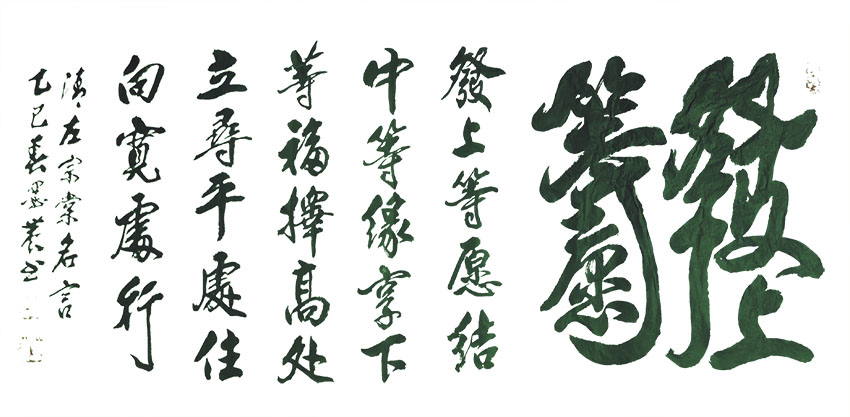 發上
等愿
發上等愿结
中等缘享下
等福擇高处
立尋平處住
向寬處行
清左宗棠名言
乙巳春墨農书